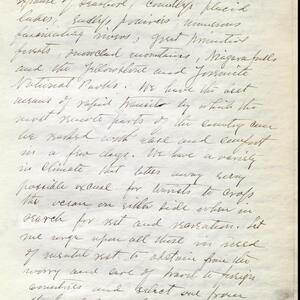 expanse of seaboard, countless placid
lakes, endless prairies numerous
fascinating rivers, great primitive
forests, snowclad mountains, Niagara falls
and the Yellowstone and Yosemite
National Parks. We have the best
means of rapid transit by which the
most remote parts of the country can
be reached with ease and comfort
in a few days. We have a variety
in climate that takes away every
possible excuse for tourists to cross
the ocean on either side when in
search for rest and recreation. Let
me urge upon all those in need
of mental rest to abstain from the
worry and care of travel to foreign
countries and select one from